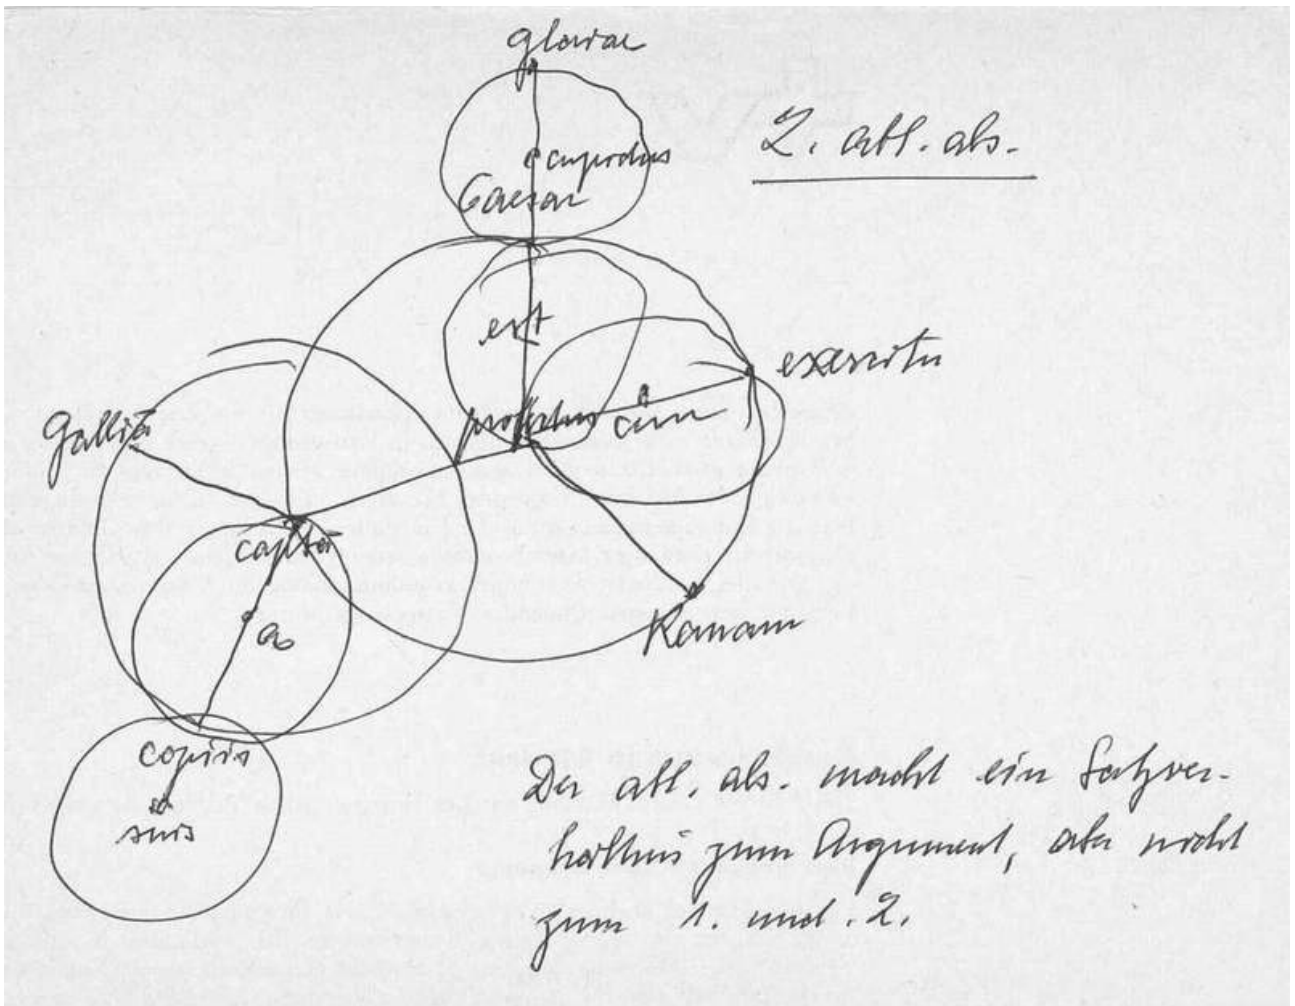 gloriae
2. abl. abs.
cupidus
Caesar
est
exercitu
Galliā
profectus
cum
captā
Romam
a
copiis
suis
Der abl. abs. macht ein Satzver-
hältnis zum Argument, aber nicht
zum 1. und 2.